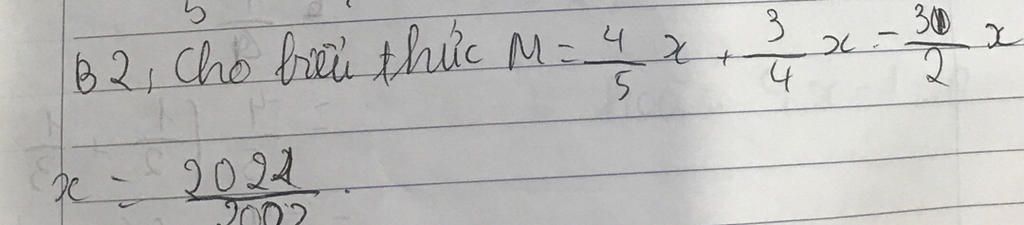 5
B2, Cho biểu thức M = 4/5 x + 3/4 x - 30/2 x
x = 2021/2002.